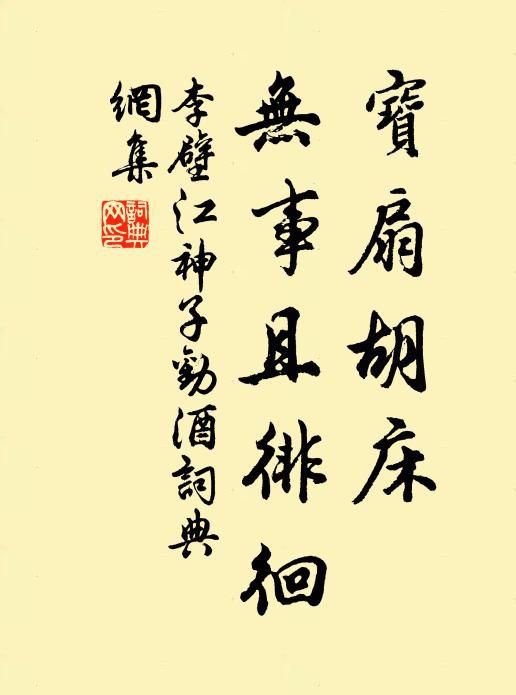 寶扇胡床
無事且徘徊
李壁江神子勸酒詞典
網集
詞典网印